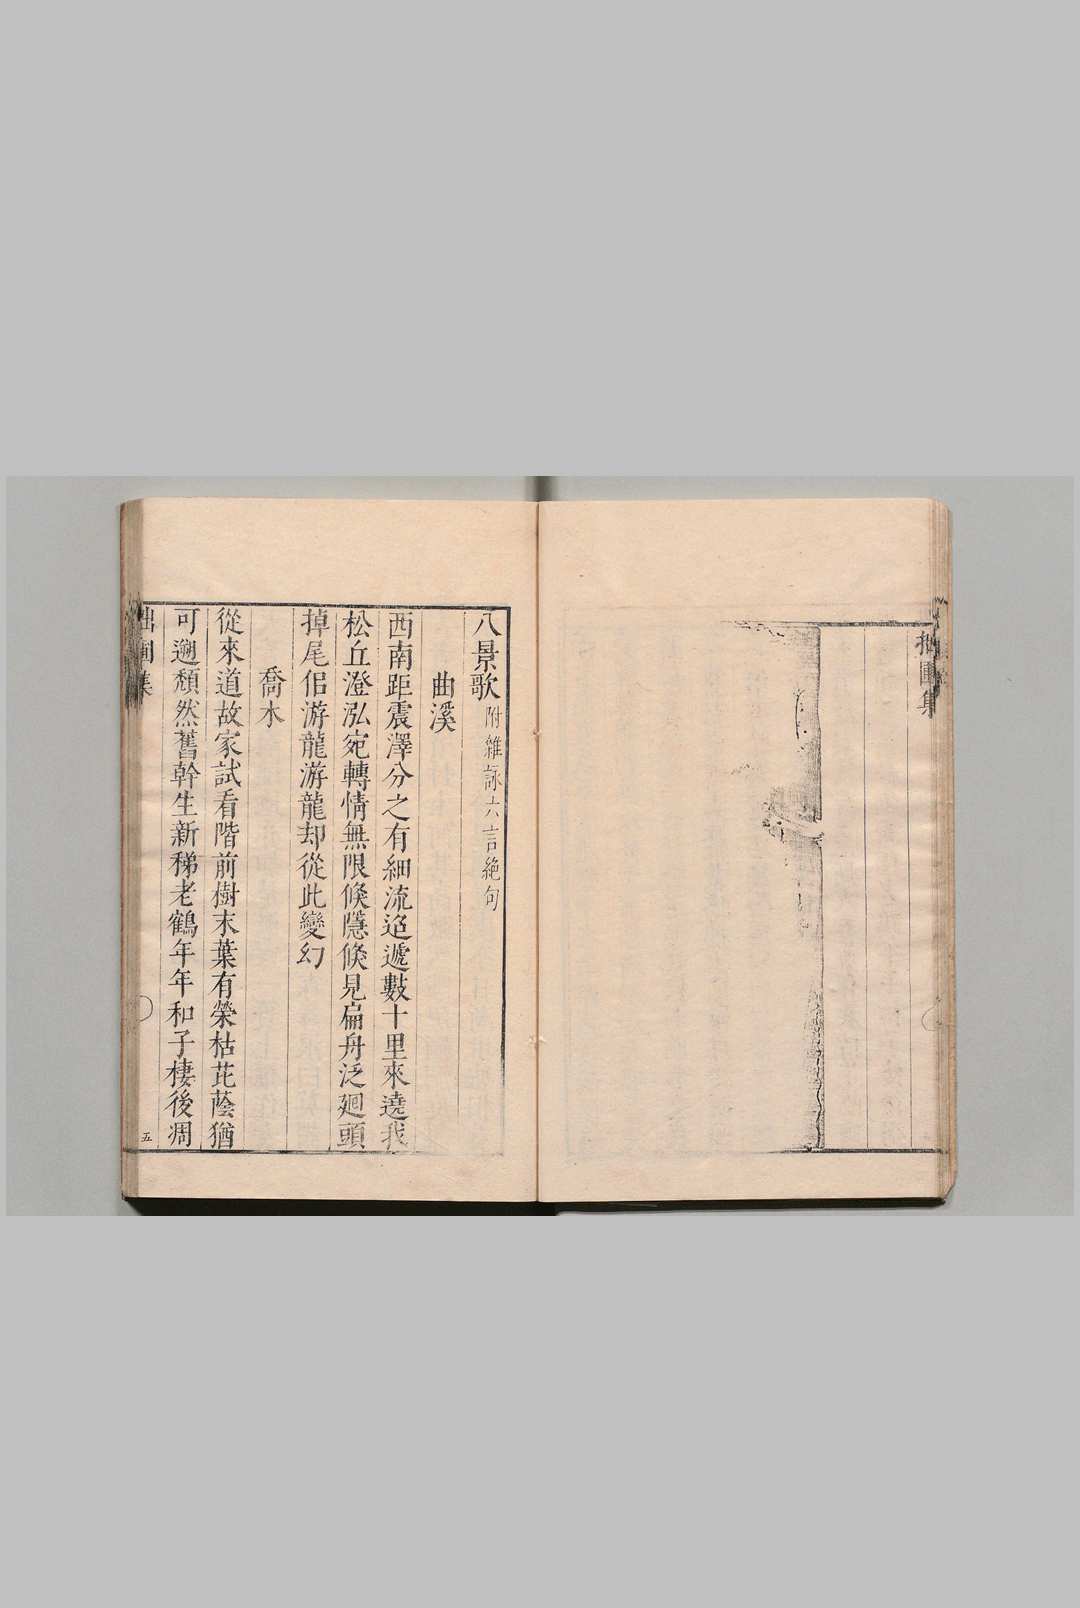 八景歌 附雜詠六言絶句
曲溪
西南距震澤分之有細流迢遞數十里來遶我
松丘澄泓宛轉情無限倐隱倐見扁舟泛廻頭
掉尾侶游龍游龍却從此變幻
喬木
從來道故家試看階前樹末葉有榮枯芘蔭猶
可遡頹然舊幹生新稊老鶴年年和子棲後凋
五